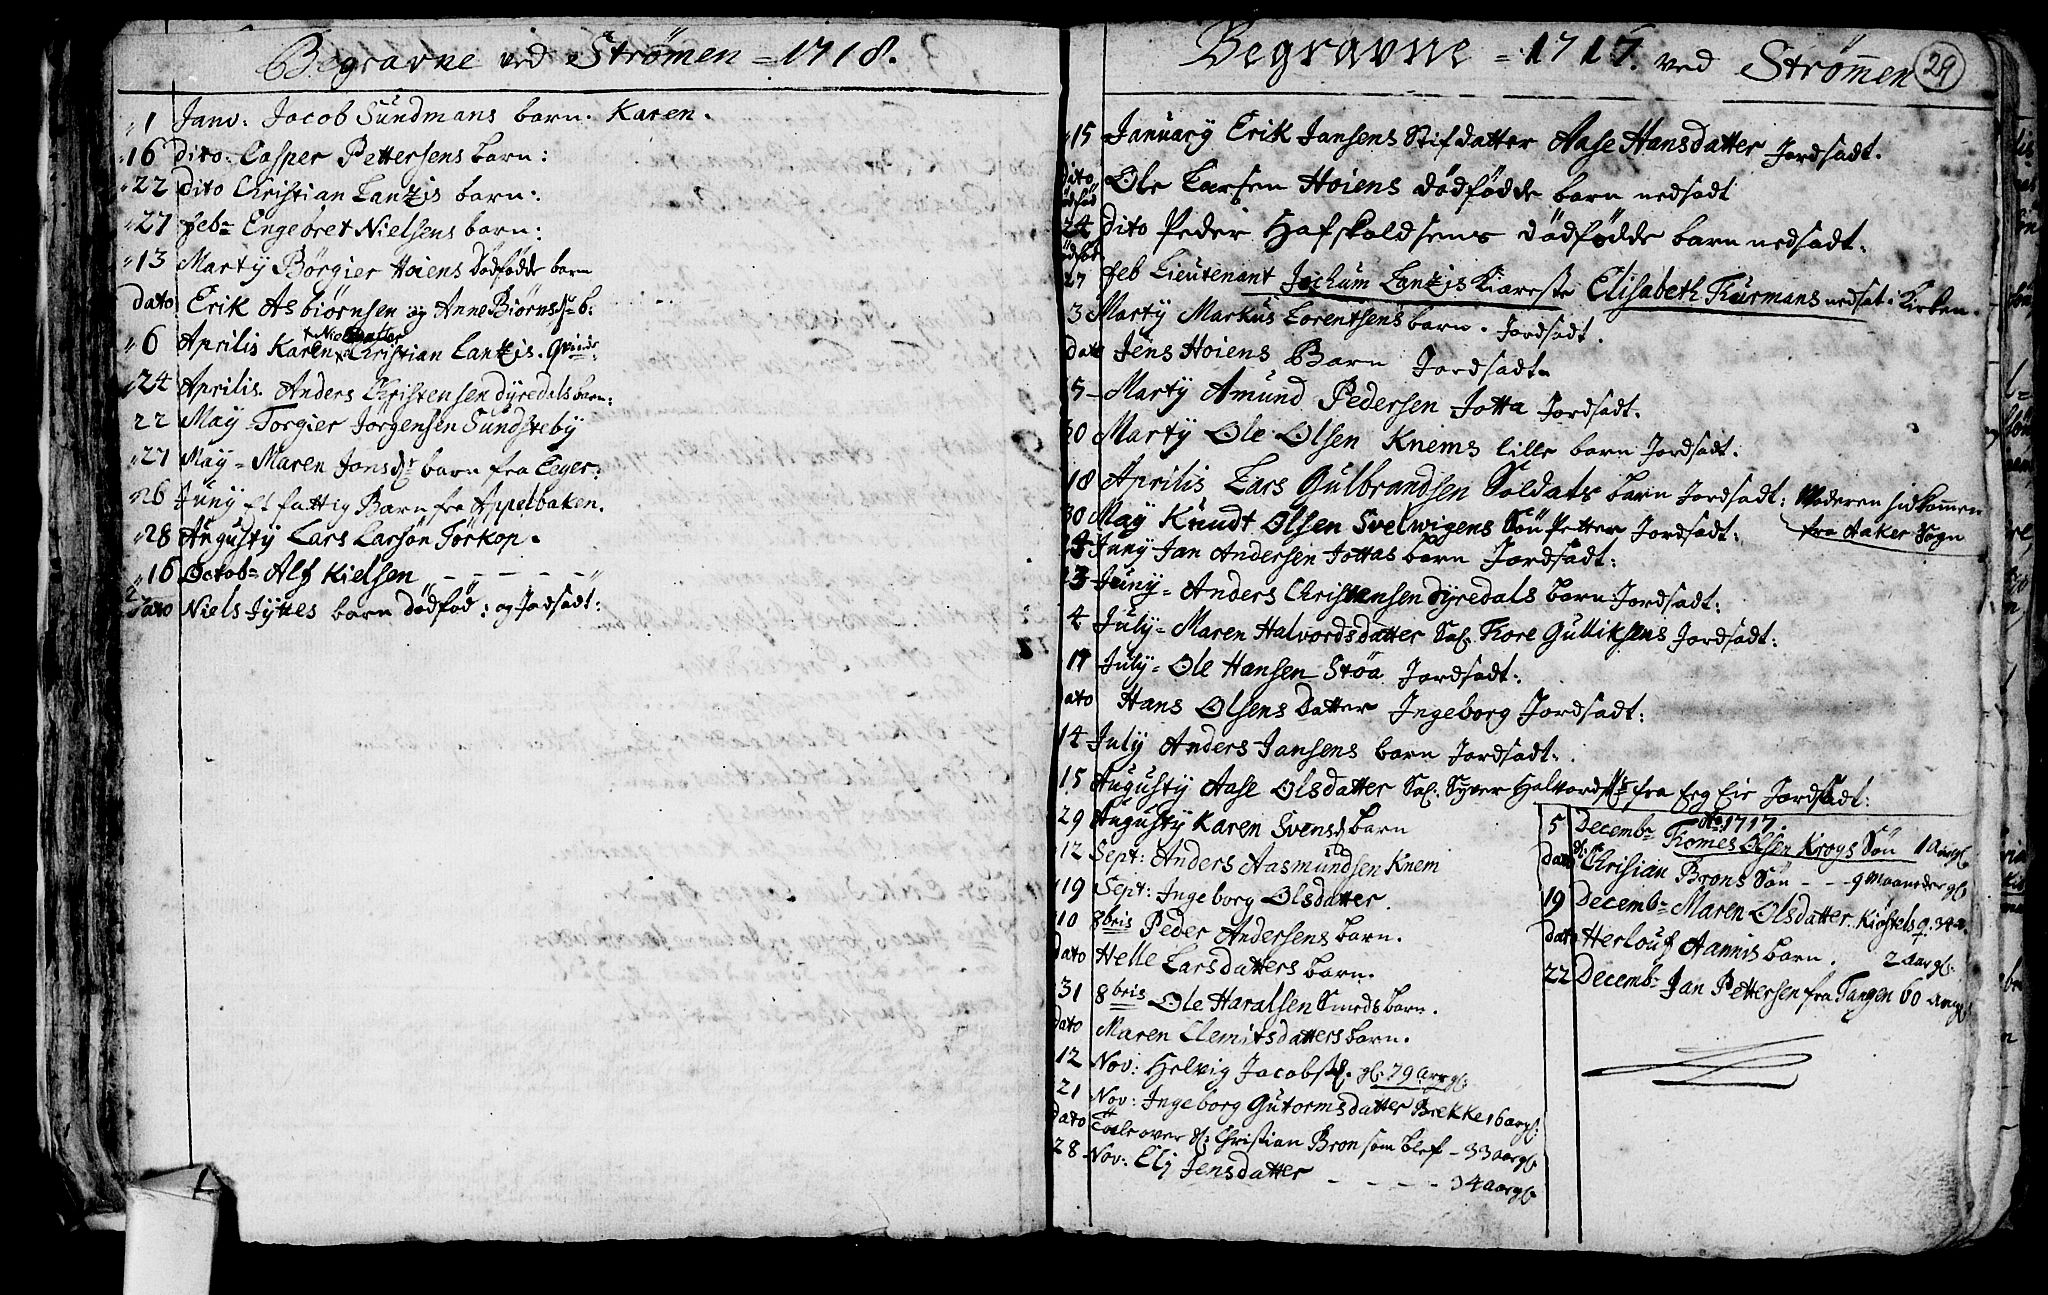 Begravne ved Strömen = 1718.
1 Janv: Jacob Sundmans barn. Karen.
16 dito: Casper Pettersens barn:
22 dito Christian Lantzis barn:
27 feb= Engebret Nielsens barn:
13 Marty Börgier Hoiens dödfödde barn
dato Erik Asbiörnsen og Anne Biörns b:
6 Aprilis Karen Nielsdatter Christian Lantzis.
24 Aprilis. Anders Christensen dyredals barn:
22 May - Torgier Jorgensen Sundsteby
27 May = Maren Jonsd: barn fra Eeger:
26 Juny et fattig Barn fra Appelbaken.
28 Augusty Lars Larson Törkop.
16 Octob= Alf Kielsen
dato Niels Jyttes barn dödfød: og Jordsadt:
Begravne = 1717. ved Strömen
29
15 January Erik Jansens Stifdatter Aase Hansdatter Jordsadt.
dito Ole Larsen Hoiens dödfödde barn nedsadt
24 dito Peder Hafskoldsens dödfödde barn nedsadt.
27 feb Lieutenant Jochum Lantzis Kiæreste Elisabeth Thurmans nedsat i Kirken.
3 Marty Markus Lorentsens barn. Jordsadt.
dato Jens Hoiens Barn Jordsadt.
15 Marty Amund Pedersen Jotta Jordsadt.
30 Marty Ole Olsen Knems lille barn Jordsadt.
18 Aprilis Lars Gulbrandsen Soldats barn Jordsadt: Moderen hidkommen
fra Aaker Sogn
30 May Knudt Olsen Svelwigens Sön Petter Jordsadt:
Juny Jan Andersen Jottas barn Jordsadt:
13 Juny = Anders Christensen dyredals barn Jordsadt:
4 July = Maren Halvordsdatter Sal. Thore Gulliksens Jordsadt:
17 July = Ole Hansen Stöa Jordsadt:
dato Hans Olsens datter Ingeborg Jordsadt:
14 July Anders Jansens barn Jordsadt:
15 Augusty Aase Olsdatter Sal: Syver Halvords fra Eeg Eie Jordsadt:
29 Augusty Karen Svensd barn
12 Sept: Anders Aasmundsen Knem
19 Sept: Ingeborg Olsdatter.
10 8bris Peder Andersens barn.
dato Helle Larsdatters barn.
31 8bris Ole Haralsen Smeds barn.
dato Maren Clemitsdatters barn.
12 Nov: Helvig Jacobsd. gl: 79 Aar gl:
21 Nov: Ingeborg Gutormsdatter Brekke 16 aar gl:
dato Tale over Christian Bron som blef - 33 aar gl:
28 Nov: Elj Jensdatter - - - - 34 Aar gl:
5 Decemb= Ao 1717. Thomes Olsen Krogs Sön 1 Aar gl:
dato Chrisian Brons Sön - - 9 Maaneder gl:
19 Decemb= Maren Olsdatter Kiöstels q. 34 a.
dato Herlouf Aannis barn. 2 Aar gl:
22 Decemb= Jan Pettersen fra Tangen 60 Aar gl: